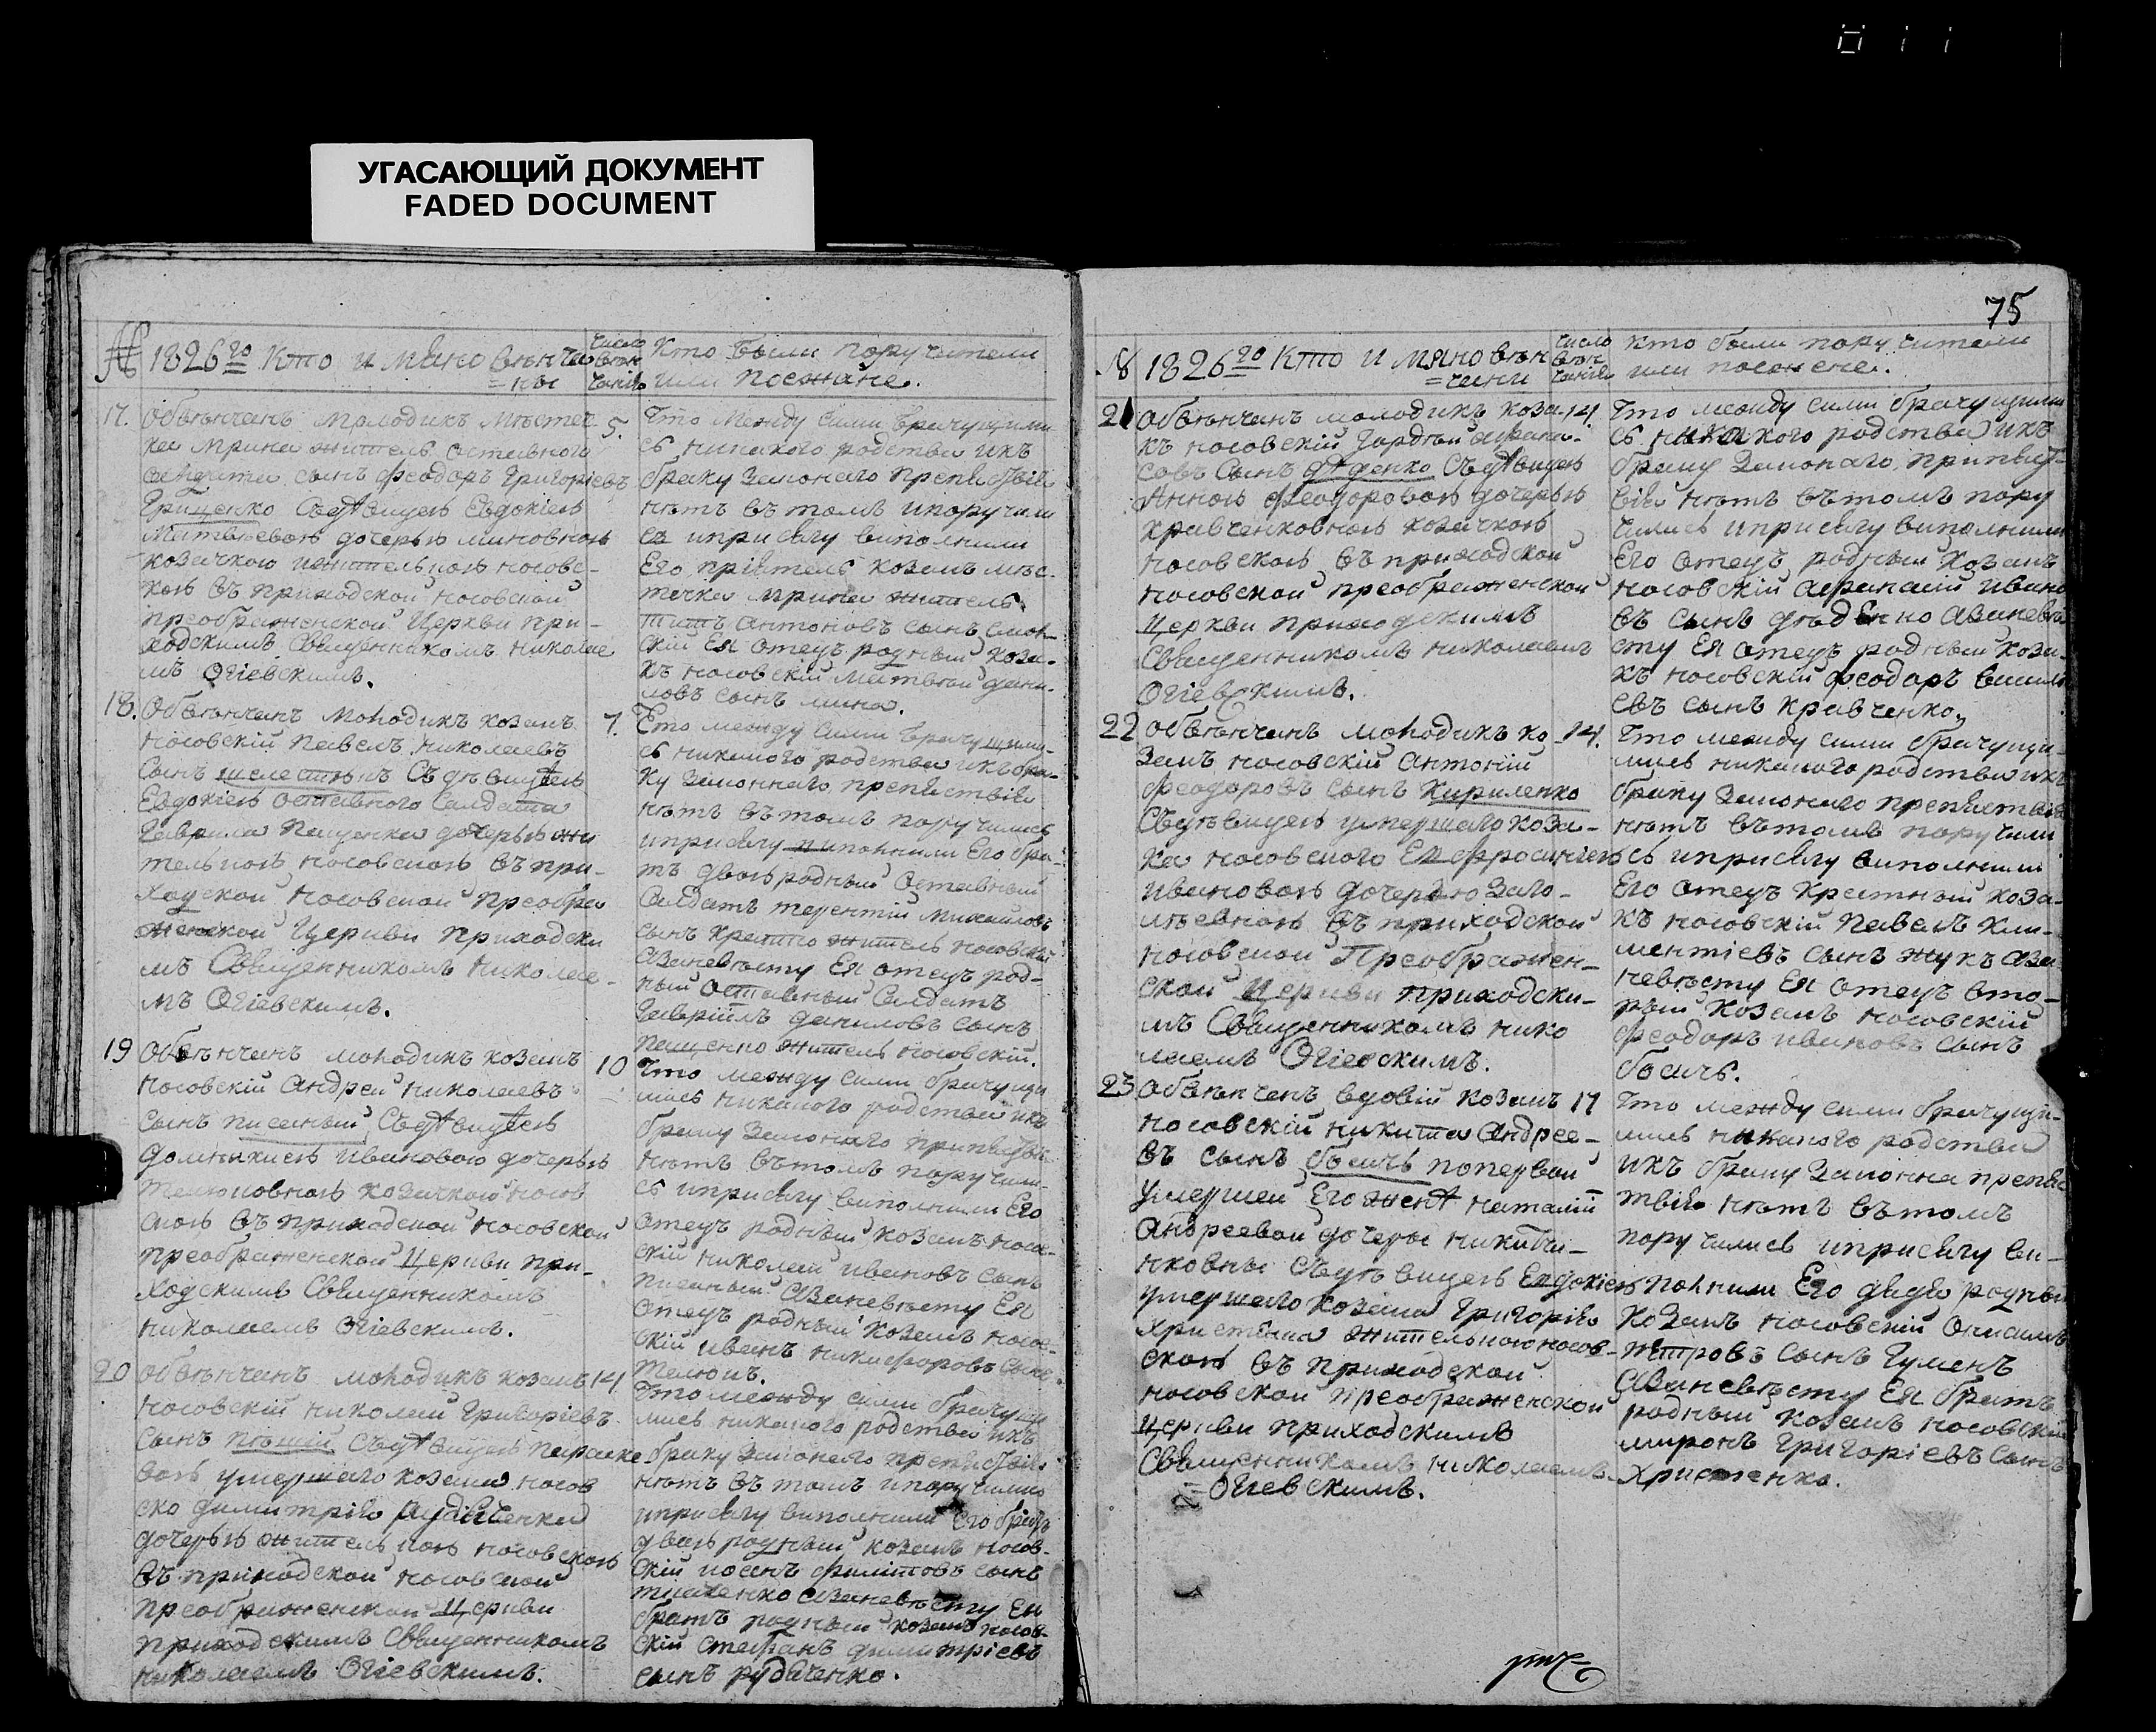 УГАСАЮЩИЙ ДОКУМЕНТ
FADED DOCUMENT
№ 1826го Кто имяно вѣнча
= ны
число
вѣн
чанія
Кто были поручители
или поезжане.
17. Обвѣнчанъ молодикъ мѣстеч
ка Мрина житель оставного
салдата сынъ Феодоръ Григоріевъ
Грищенко Съдѣвицею Евдокіею
Матвѣевою дочерью Миновною
козачкою ижительною носовс-
кою въ приходской носовской
преображенской Церкви при-
ходскимъ Священникомъ николае
мъ Огіевскимъ.
5.
Что Между сими брачущими
сь никакого родства ихъ
браку Законаго препятствія
нѣтъ въ томъ ипоручили
сь иприсягу виполнили
Его пріятель козакъ мѣс.
течка Мрина житель
Титъ Антоновъ сынъ
скій Ея отецъ родный коза-
къ носовскій Матвѣй дани-
ловъ сынъ мина.
18. Обвѣнчанъ молодикъ козакъ
носовскій Павелъ николаевъ
Сынъ Съдѣвицею
Евдокіею оставного Салдата
Гаврила Пащенка дочерью жи
тельною носовскою въ при-
ходской носовской преобра
женской Церкви приходски
мъ Священникомъ николае-
мъ Огіевскимъ.
7.
Что между сими брачущими-
сь никакого родства ихъ бра-
ку Законнаго препятствія
нѣтъ въ томъ поручились
иприсягу виполнили Его бра-
тъ двоюродный Оставный
Салдатъ терентій Михайловъ
сынъ житель носовскій
Азаневѣсту Ея отецъ род-
ный Оставный Салдатъ
Гавріилъ даниловъ сынъ
Пащенко житель носовскій.
19 Обвѣнчанъ молодикъ козакъ
носовскій Андрей николаевъ
сынъ писаный Съдѣвицею
Домникіею Ивановою дочерью
Телюковною козачкою носов
скою въ приходской носовской
преображенской Церкви при-
ходскимъ Священникомъ
николаемъ Огіевскимъ.
10
Что между сими брачущи
мись никакого родства ихъ
браку Законаго
нѣтъ въ томъ поручили-
сь иприсягу виполнили Его
отецъ родный козакъ носо-
скій николай ивановъ сынъ
писаный Азаневѣсту Ея
отецъ родный козакъ носов-
скій иванъ никифоровъ сынъ
Телюкъ.
20 Обвѣнчанъ молодикъ козакъ
носовскій николай григоріевъ
сынъ Съдѣвицею параске
вою умершаго козака носов
ско димитрія
дочерью жительною носовскою
въ приходской носовской
преображенской Церкви
приходскимъ Священникомъ
николаемъ Огіевскимъ.
14.
Что между сими брачущи
мись никакого родства ихъ
браку Законаго препятствія
нѣтъ въ томъ ипоручились
иприсягу виполнили Его братъ
двоюродный козакъ носов-
скій филиповъ сынъ
Азаневѣсту Ея
братъ родный козакъ носов-
скій Стефанъ димитріевъ
сынъ рудыченко.
75
№ 1826го Кто имяно вѣн
= чани
число
вѣн
чанія
кто были поручители
или поезжане.
21 Обвѣнчанъ молодикъ коза-
къ носовскій Гордѣй Афана-
совъ Сынъ дѣденко Съдѣвицею
Анною Феодоровою дочерью
кравченковною козачкою
носовскою въ приходской
носовской преображенской
Церкви приходскимъ
Священникомъ николаемъ
Огіевскимъ.
14.
Что между сими брачущими
сь никакого родства ихъ
браку Законаго препятс-
вія нѣтъ въ томъ пору
чились иприсягу виполнили
Его отецъ родный Козакъ
носовскій Афанасій ивано
въ сынъ дѣденко Азаневѣ
сту Ея отецъ родный коза-
къ носовскій феодоръ васил
евъ сынъ кравченко.
22 Обвѣнчанъ молодикъ ко-
закъ носовскій Антоній
Феодоровъ сынъ Кириленко
Съдѣвицею умершаго коза-
ка носовского Ефросиніею
Ивановою дочерью
въ приходской
носовской Преображен-
ской Церкви приходски-
мъ Священникомъ нико
лаемъ Огіевскимъ.
14.
Что между сими брачущи-
мись никакого родства ихъ
браку Законаго препятствія
нѣтъ въ томъ поручили
сь иприсягу виполнили
Его отецъ Крестный коза-
къ носовскій Павелъ Кли-
ментіевъ сынъ жукъ Аза
невѣсту Ея отецъ вто-
рый Козакъ носовскій
феодоръ ивановъ сынъ
босакъ.
23 Обвѣнчанъ вдовій козакъ
носовскій никита Андрее-
въ сынъ босакъ попервой
умершей Его женѣ наталіи
Андреевой дочеры
Съдѣвицею Евдокіею
умершаго козака Григорія
Христенка жительною носов-
скою въ приходской
носовской преображенской
Церкви приходскимъ
Священникомъ николаемъ
= Огіевскимъ.
17
Что между сими брачущи-
мись никакого родства
ихъ браку Законна препя
твія нѣтъ въ томъ
поручились иприсягу ви-
полнили Его дядя родны
козакъ носовскій
петровъ сынъ Гуменъ
Азаневѣсту Ея братъ
родный козакъ носовскій
миронъ Григоріевъ сынъ
Христенко.